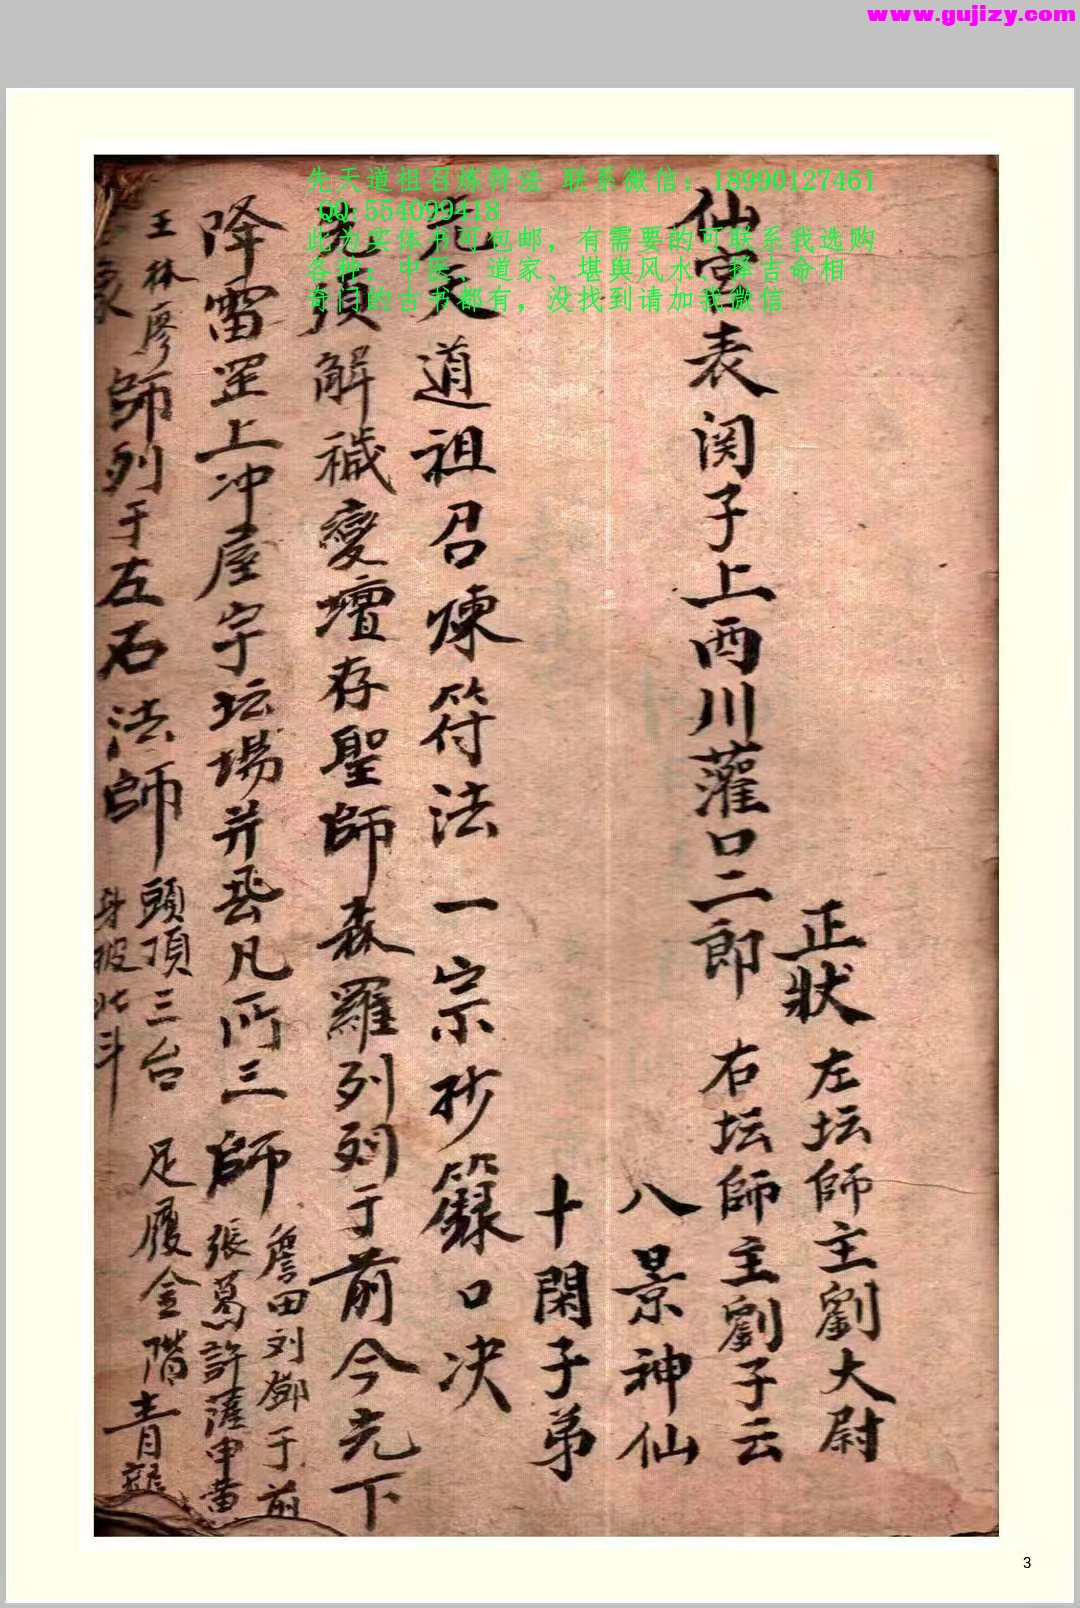 www.gujizy.com
先天道祖召炼符法 联系微信：18990127461
QQ:554099418
此为实体书可包邮，有需要的可联系我选购
各种；中医、道家、堪舆风水、择吉命相
奇门的古书都有，没找到请加我微信
正狀 左坛師主劉大尉
仙官表関子上西川灌口二郎 右坛師主劉子云
八景神仙
十閑子弟
先天道祖召煉符法一宗抄籙口決
先須解穢變壇存聖師森羅列列于前今先下
降雷罡上冲屋宇坛場并 凡所三師
詹田刘鄧于前
張葛許薩申黄
王林廖師列于左右法師
頭頂三台 足履金階青龍
身披北斗
3